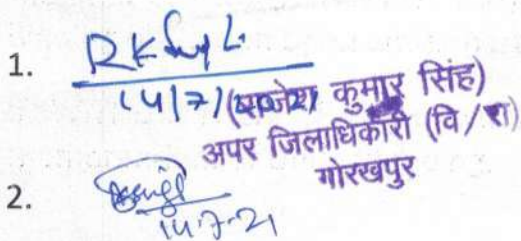 1. RK
14/7/2021
(राजेश कुमार सिंह)
अपर जिलाधिकारी (वि/रा)
गोरखपुर
2.
14.7.21